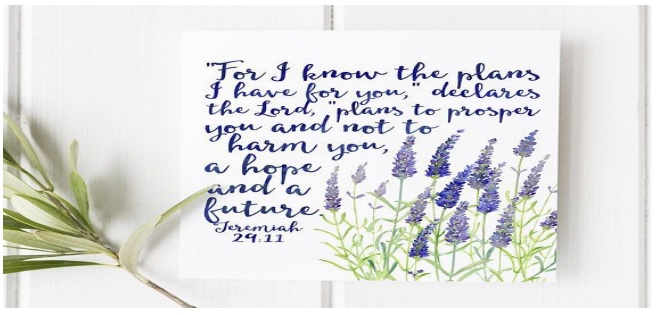 "For I know the plans
I have for you," declares
the Lord, "plans to prosper
you and not to
harm you,
a hope
and a
future.
Jeremiah
29:11